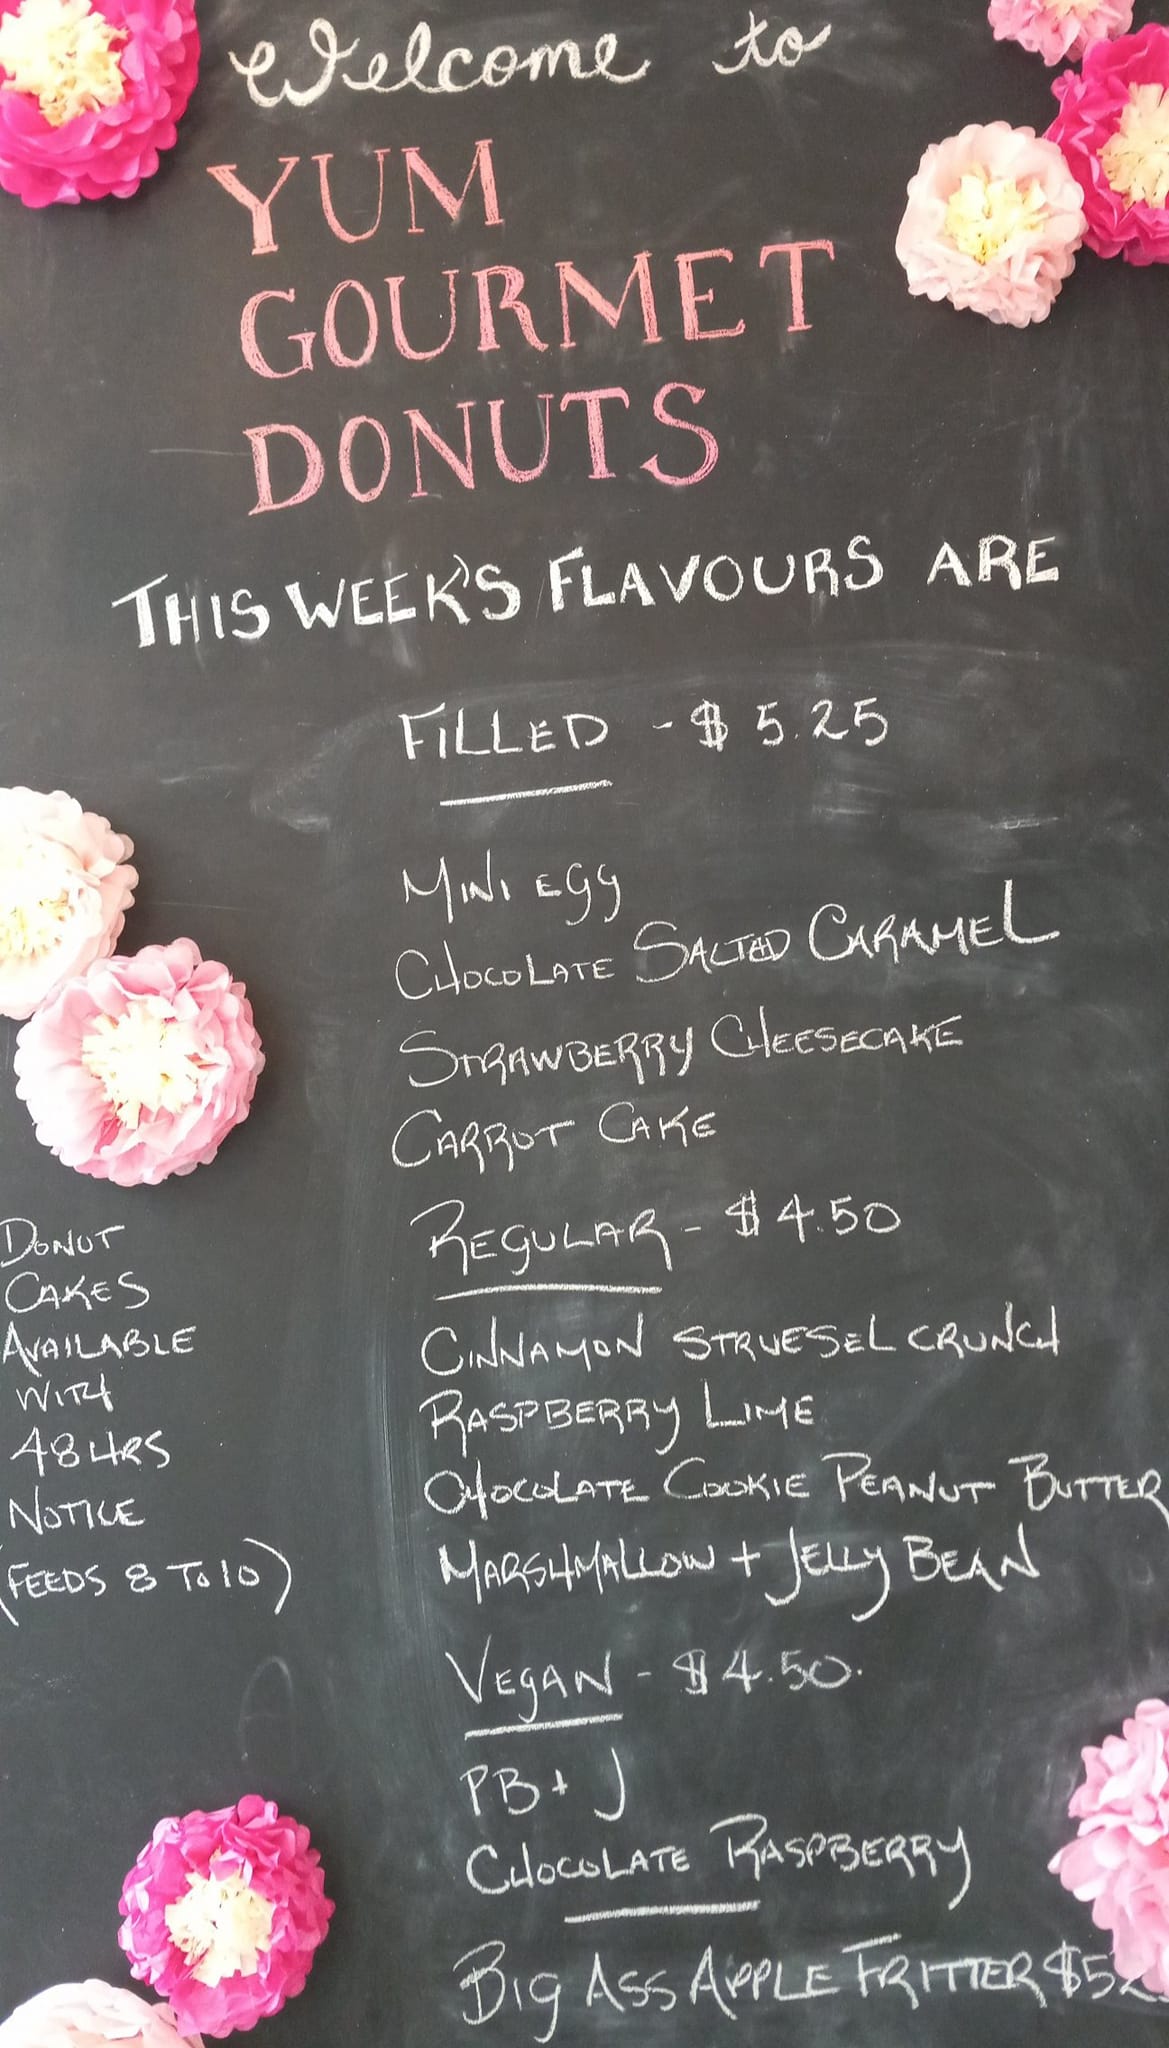 Welcome to
YUM
GOURMET
DONUTS
THIS WEEK'S FLAVOURS ARE
FILLED - $5.25
MINI EGG
CHOCOLATE SALTED CARAMEL
STRAWBERRY CHEESECAKE
CARROT CAKE
REGULAR - $4.50
CINNAMON STRUESEL CRUNCH
RASPBERRY LIME
CHOCOLATE COOKIE PEANUT BUTTER
MARSHMALLOW + JELLY BEAN
VEGAN - $4.50.
PB + J
CHOCOLATE RASPBERRY
BIG ASS APPLE FRITTER
DONUT
CAKES
AVAILABLE
WITH
48 HRS
NOTICE
(FEEDS 8 TO 10)